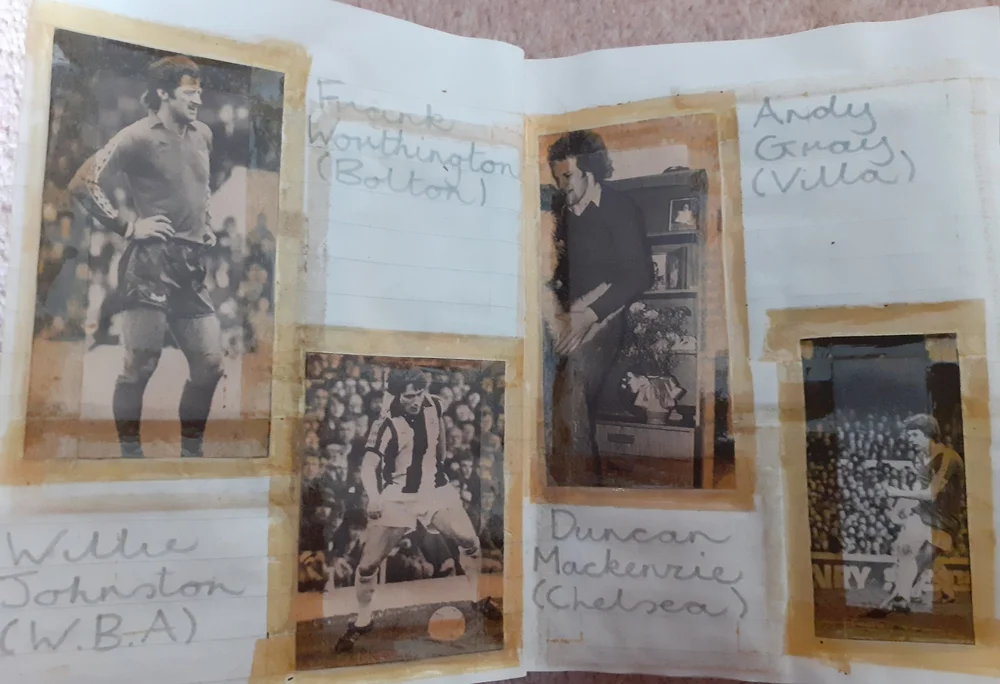 Frank
Worthington
(Bolton)
Willie
Johnston
(W.B.A)
Andy
Gray
(Villa)
Duncan
Mackenzie
(Chelsea)